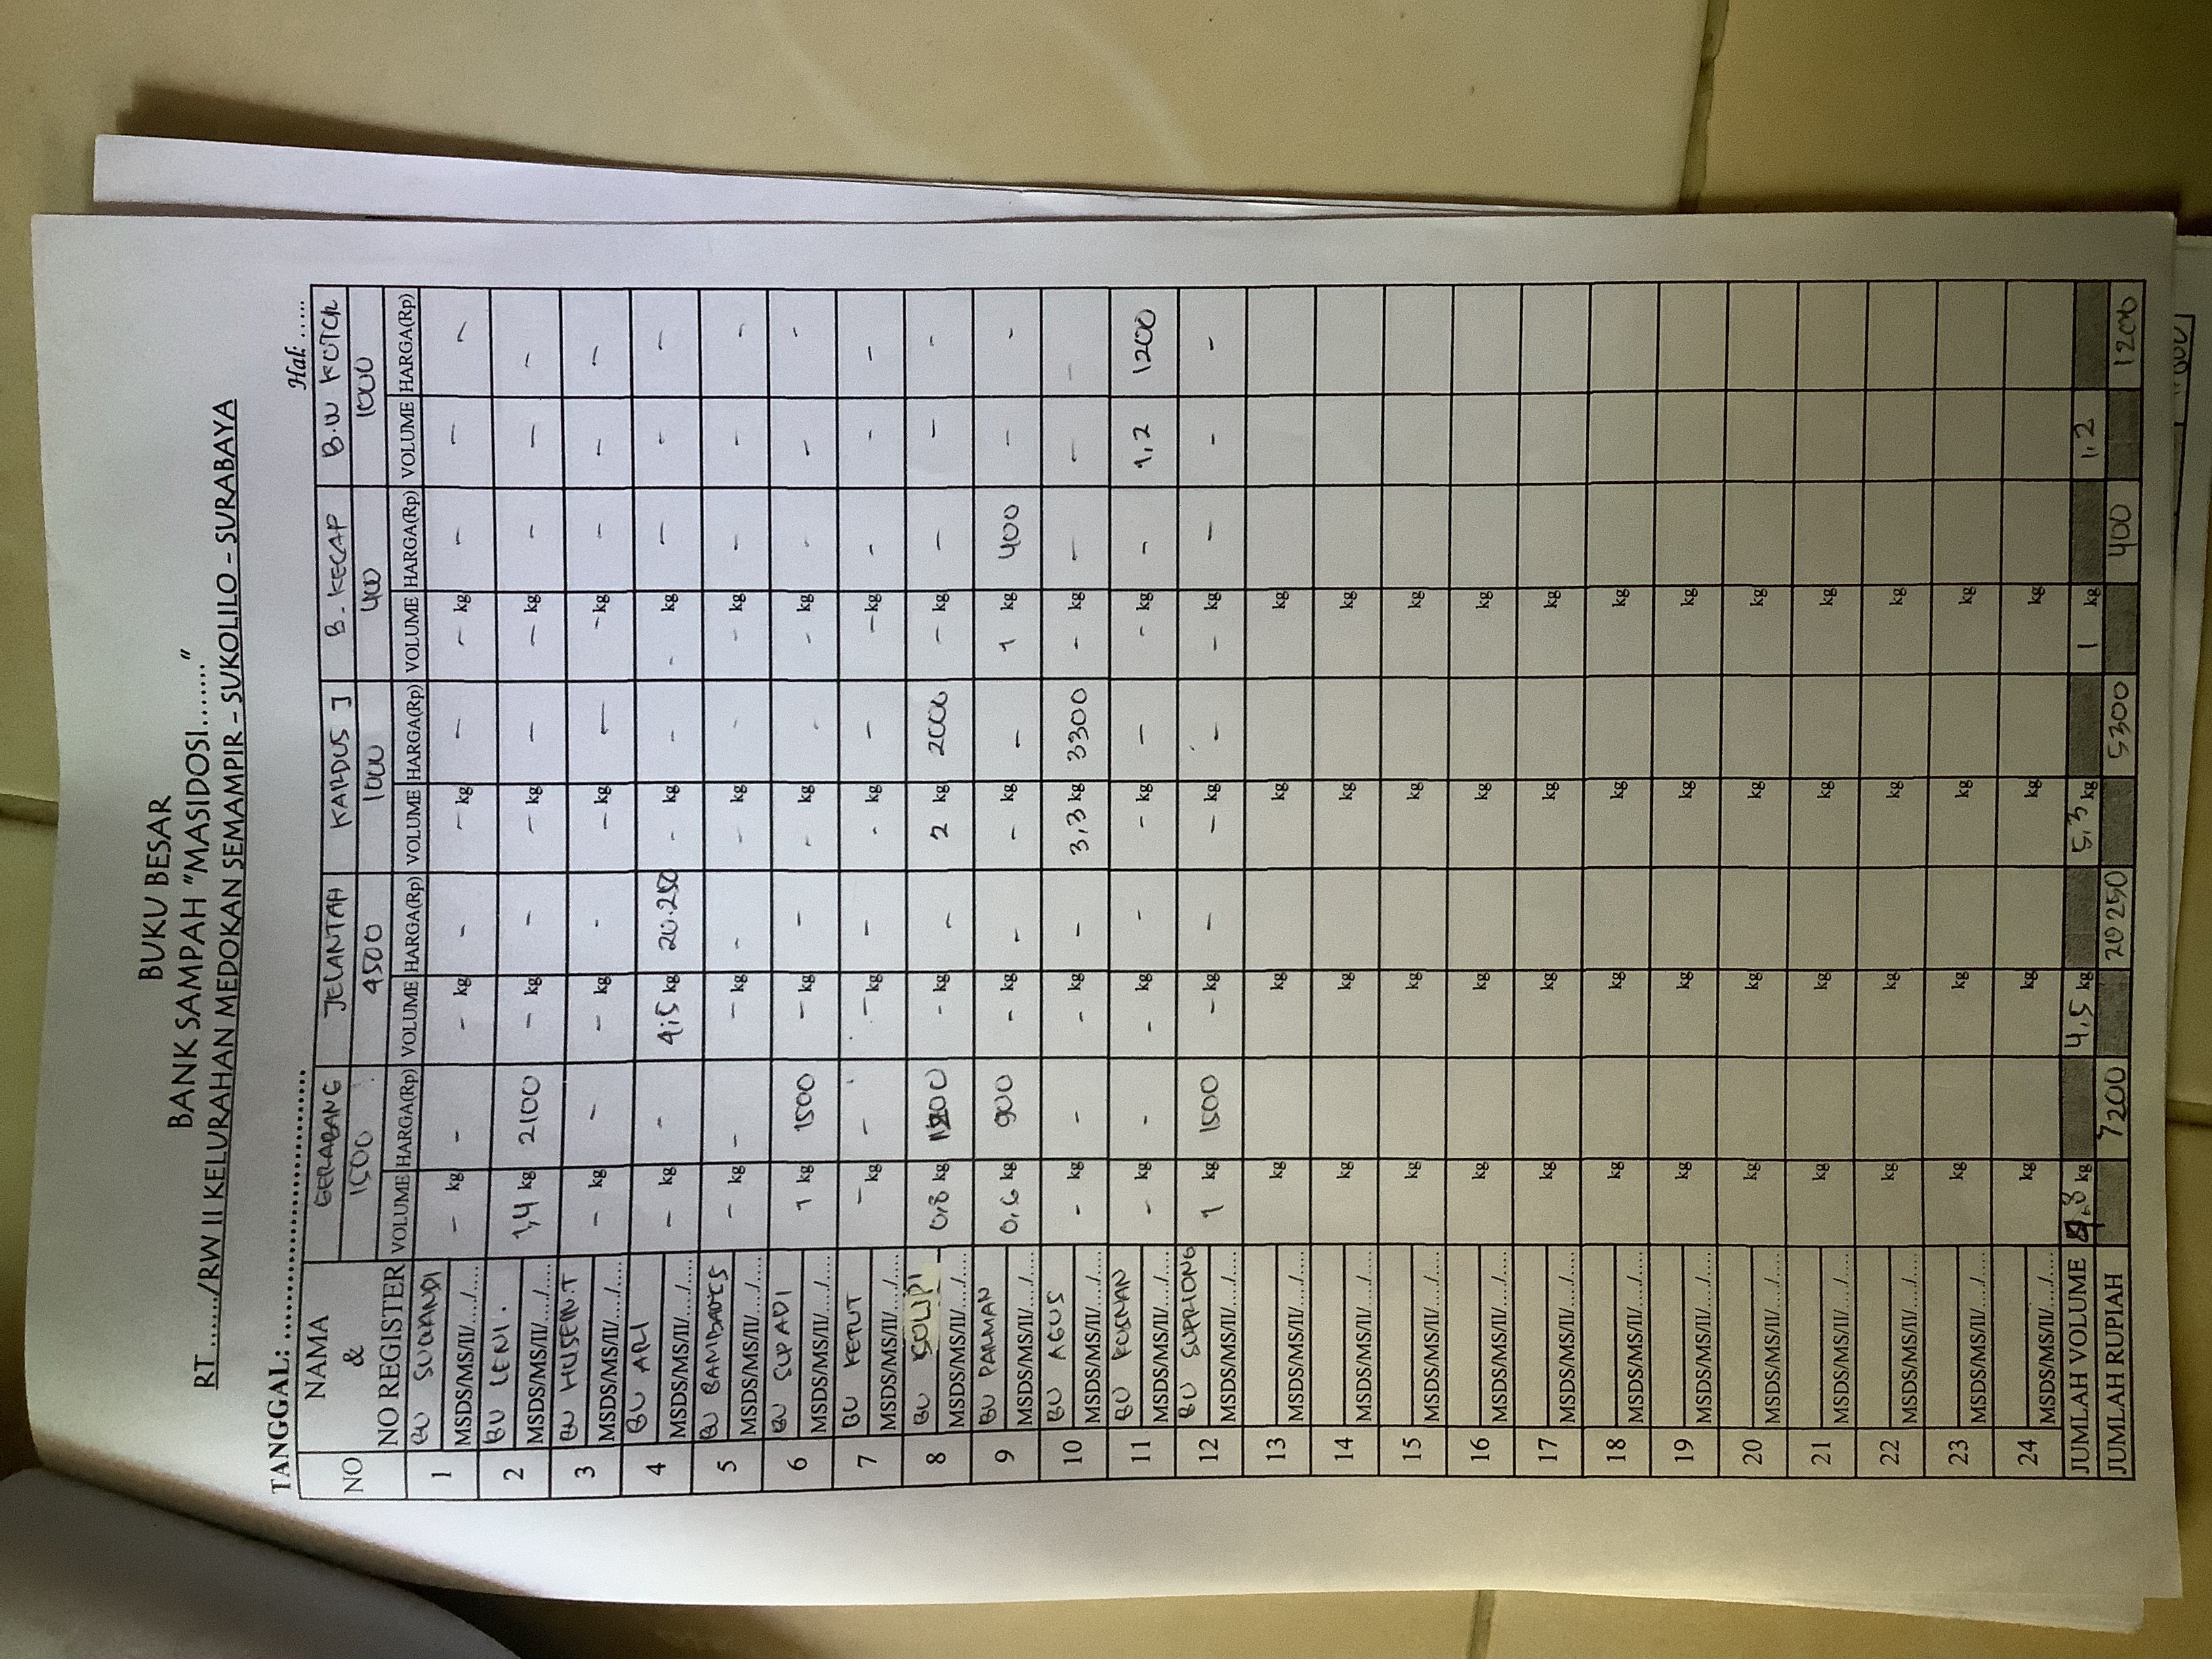 BUKU BESAR
BANK SAMPAH "MASIDOSI......."
RT ....../RW II KELURAHAN MEDOKAN SEMAMPIR - SUKOLILO - SURABAYA
TANGGAL: ..............................
Hal: .....
NO NAMA & NO REGISTER GERABANG JELANTAH KARDUS J B. KECAP B.W KOTOR
1500 4500 1000 400 1000
VOLUME HARGA(Rp) VOLUME HARGA(Rp) VOLUME HARGA(Rp) VOLUME HARGA(Rp) VOLUME HARGA(Rp)
1 BU SUWANDI
MSDS/MS/II/..../.... - kg - - kg - - kg - - kg - - -
2 BU LENI.
MSDS/MS/II/..../.... 1,4 kg 2100 - kg - - kg - - kg - - -
3 BU HUSEIN.T
MSDS/MS/II/..../.... - kg - - kg - - kg - - kg - - -
4 BU ARI
MSDS/MS/II/..../.... - kg - 4,5 kg 20.250 - kg - - kg - - -
5 BU
MSDS/MS/II/..../.... - kg - - kg - - kg - - kg - - -
6 BU SUPADI
MSDS/MS/II/..../.... 1 kg 1500 - kg - - kg - - kg - - -
7 BU KETUT
MSDS/MS/II/..../.... - kg - - kg - - kg - - kg - - -
8 BU
MSDS/MS/II/..../.... 0,8 kg 1200 - kg - 2 kg 2000 - kg - - -
9 BU PARMAN
MSDS/MS/II/..../.... 0,6 kg 900 - kg - - kg - 1 kg 400 - -
10 BU AGUS
MSDS/MS/II/..../.... - kg - - kg - 3,3 kg 3300 - kg - - -
11 BU
MSDS/MS/II/..../.... - kg - - kg - - kg - - kg - 1,2 1200
12 BU SUPRIONO
MSDS/MS/II/..../.... 1 kg 1500 - kg - - kg - - kg - - -
13 MSDS/MS/II/..../.... kg kg kg kg
14 MSDS/MS/II/..../.... kg kg kg kg
15 MSDS/MS/II/..../.... kg kg kg kg
16 MSDS/MS/II/..../.... kg kg kg kg
17 MSDS/MS/II/..../.... kg kg kg kg
18 MSDS/MS/II/..../.... kg kg kg kg
19 MSDS/MS/II/..../.... kg kg kg kg
20 MSDS/MS/II/..../.... kg kg kg kg
21 MSDS/MS/II/..../.... kg kg kg kg
22 MSDS/MS/II/..../.... kg kg kg kg
23 MSDS/MS/II/..../.... kg kg kg kg
24 MSDS/MS/II/..../.... kg kg kg kg
JUMLAH VOLUME 4,8 kg 4,5 kg 5,3 kg 1 kg 1,2
JUMLAH RUPIAH 7200 20250 5300 400 1200